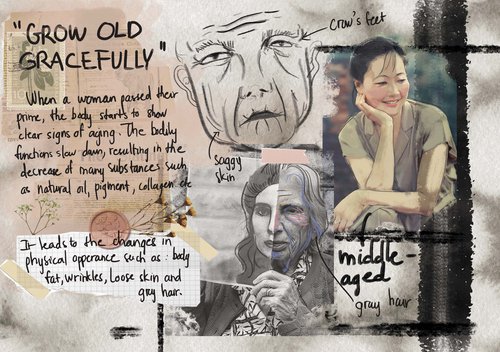 "GROW OLD
GRACEFULLY"
When a woman passed their
prime, the body starts to show
clear signs of aging. The bodily
functions slow down, resulting in the
decrease of many substances such
as natural oil, pigment, collagen etc
It leads to the changes in
physical apperance such as : body
fat, wrinkles, loose skin and
grey hair.
Crow's feet
saggy
skin
middle-
aged
gray hair